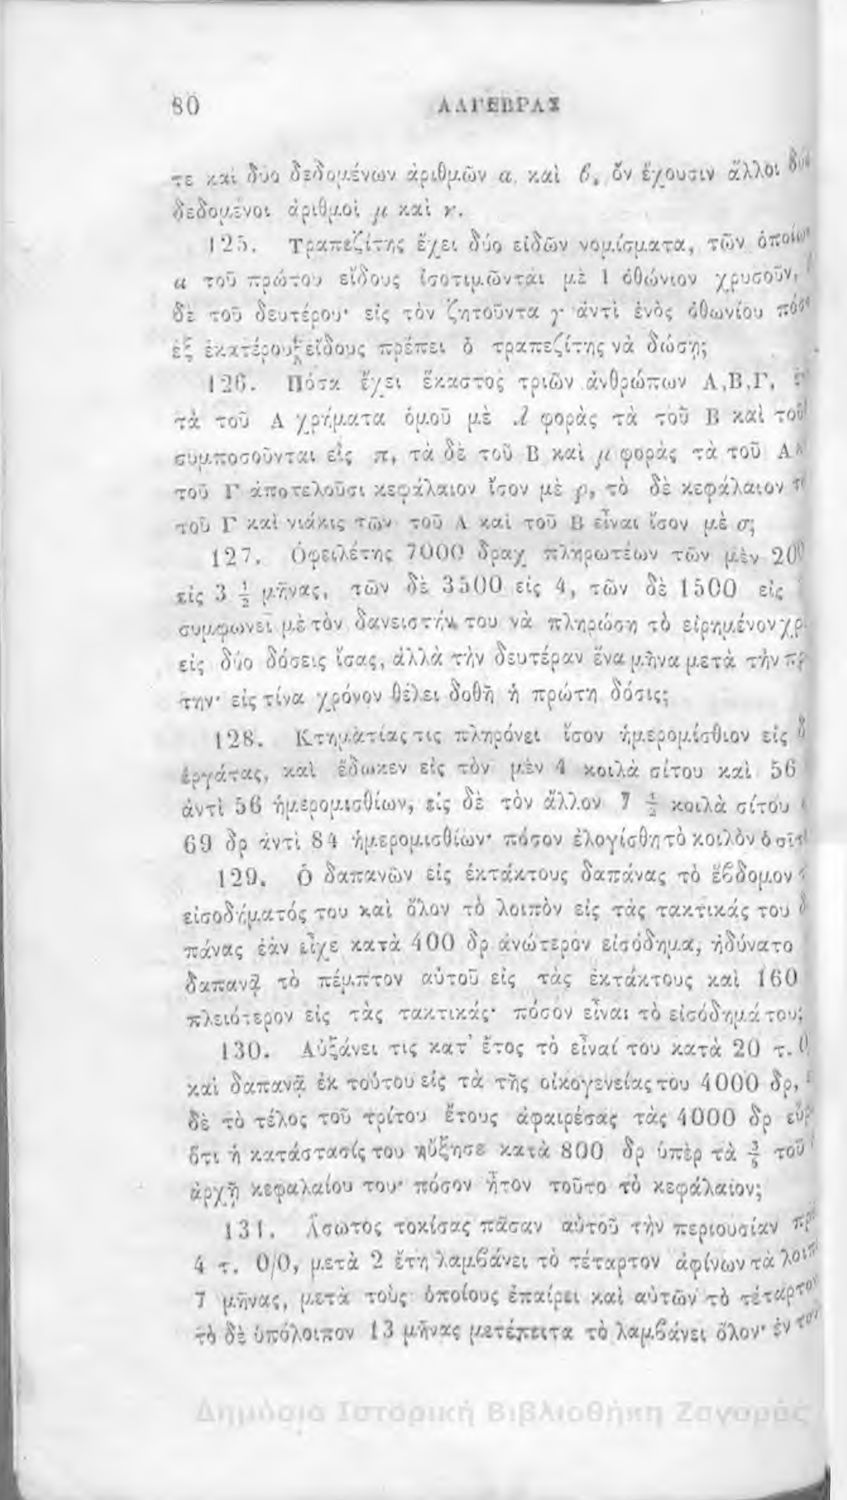 80 ΑΛΓΕΒΡΑΣ
τε καὶ δύο δεδομένων ἀριθμῶν α καὶ β, ὃν ἔχουσιν ἄλλοι δύο
δεδομένοι ἀριθμοὶ μ καὶ ν.
125. Τραπεζίτης ἔχει δύο εἰδῶν νομίσματα, τῶν ὁποίων
α τοῦ πρώτου εἴδους ἰσοτιμῶνται μὲ 1 ὀθώνιον χρυσοῦν,
δὲ τοῦ δευτέρου· εἰς τὸν ζητοῦντα γ ἀντὶ ἑνὸς ὀθωνίου πόσ
ἐξ ἑκατέρου εἴδους πρέπει ὁ τραπεζίτης νὰ δώσῃ;
126. Πόσα ἔχει ἕκαστος τριῶν ἀνθρώπων Α,Β,Γ,
τὰ τοῦ Α χρήματα ὁμοῦ μὲ λ φορὰς τὰ τοῦ Β καὶ τοῦ
συμποσοῦνται εἰς π, τὰ δὲ τοῦ Β καὶ μ φορὰς τὰ τοῦ Α
τοῦ Γ ἀποτελοῦσι κεφάλαιον ἴσον μὲ ρ, τὸ δὲ κεφάλαιον
τοῦ Γ καὶ νιάκις τῶν τοῦ Α καὶ τοῦ Β εἶναι ἴσον μὲ σ;
127. Ὀφειλέτης 7000 δραχ πληρωτέων τῶν μὲν 200
εἰς 3 ½ μῆνας, τῶν δὲ 3500 εἰς 4, τῶν δὲ 1500 εἰς
συμφωνεῖ μὲ τὸν δανειστήν του νὰ πληρώσῃ τὸ εἰρημένον χρ
εἰς δύο δόσεις ἴσας, ἀλλὰ τὴν δευτέραν ἕνα μῆνα μετὰ τὴν πρ
την· εἰς τίνα χρόνον θέλει δοθῆ ἡ πρώτη δόσις;
128. Κτηματίας τις πληρόνει ἴσον ἡμερομίσθιον εἰς δ
ἐργάτας, καὶ ἔδωκεν εἰς τὸν μὲν 4 κοιλὰ σίτου καὶ 56
ἀντὶ 56 ἡμερομισθίων, εἰς δὲ τὸν ἄλλον 7 ½ κοιλὰ σίτου
69 δρ ἀντὶ 84 ἡμερομισθίων· πόσον ἐλογίσθη τὸ κοιλὸν ὁ σῖτ
129. Ὁ δαπανῶν εἰς ἐκτάκτους δαπάνας τὸ ἕβδομον
εἰσοδήματός του καὶ ὅλον τὸ λοιπὸν εἰς τὰς τακτικάς του δ
πάνας ἐὰν εἶχε κατὰ 400 δρ ἀνώτερον εἰσόδημα, ἠδύνατο
δαπανᾷ τὸ πέμπτον αὐτοῦ εἰς τὰς ἐκτάκτους καὶ 160
πλειότερον εἰς τὰς τακτικάς· πόσον εἶναι τὸ εἰσόδημά του;
130. Αὐξάνει τις κατ' ἔτος τὸ εἶναί του κατὰ 20 τ. 0
καὶ δαπανᾷ ἐκ τούτου εἰς τὰ τῆς οἰκογενείας του 4000 δρ,
δὲ τὸ τέλος τοῦ τρίτου ἔτους ἀφαιρέσας τὰς 4000 δρ εὗρ
ὅτι ἡ κατάστασίς του ηὔξησε κατὰ 800 δρ ὑπὲρ τὰ τοῦ
ἀρχῇ κεφαλαίου του· πόσον ἦτον τοῦτο τὸ κεφάλαιον;
131. Ἄσωτος τοκίσας πᾶσαν αὐτοῦ τὴν περιουσίαν πρ
4 τ. 0/0, μετὰ 2 ἔτη λαμβάνει τὸ τέταρτον ἀφίνων τὰ λοιπ
7 μῆνας, μετὰ τοὺς ὁποίους ἐπαίρει καὶ αὐτῶν τὸ τέταρτον
τὸ δὲ ὑπόλοιπον 13 μῆνας μετέπειτα τὸ λαμβάνει ὅλον· ἐν το
Δημόσια Ιστορική Βιβλιοθήκη Ζαγοράς